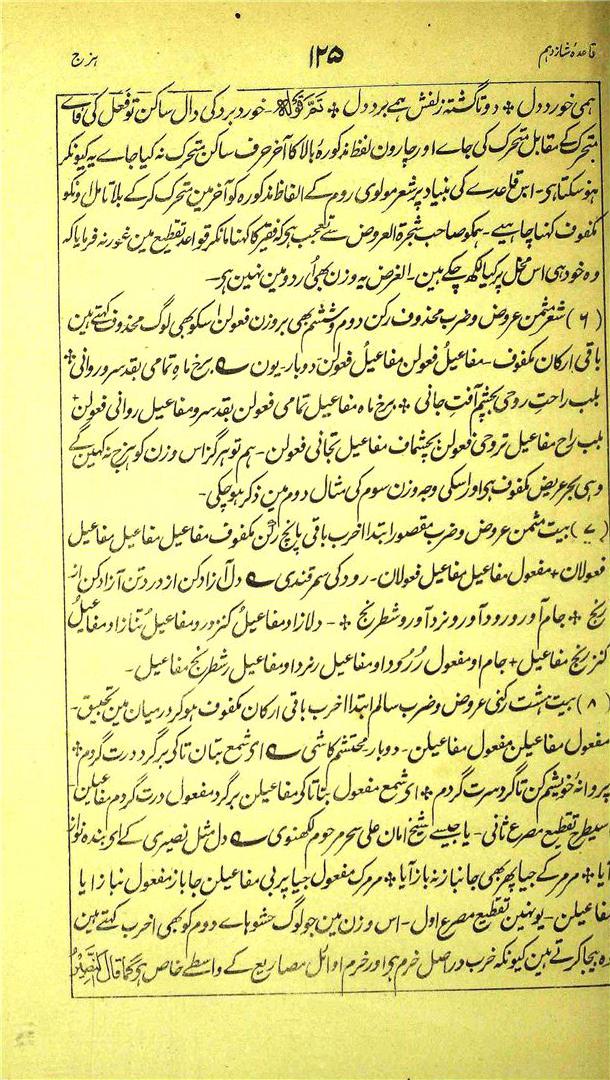 قاعدہ شانزدہم ۱۲۵ ہزج
ہمی خورد دل ٭ دوتا گشتہ زلفش ہمے برد دل ٭ خورد برد کی دال ساکن تو فعل کی فاے
متحرک کے مقابل متحرک کی جاے اور چارون لفظ مذکورۂ بالا کا آخر حرف ساکن متحرک نہ کیا جاے یہ کیونکر
ہو سکتا ہی۔ اس قاعدے کی بنیاد پر شعر مولوی روم کے الفاظ مذکورہ کو آخر مین متحرک کر کے بلا تامل
مکفوف کہنا چاہیے۔ ہمکو صاحب شجرۃ العروض سے تعجب ہی کہ فقیر کا کہنا مانکر قواعد تقطیع مین غور نہ فرمایا کہ
وہ خود ہی اس محل پر کیا لکھ چکے ہین۔ الغرض یہ وزن بھی اُردو مین نہین ہی۔
(۶) شعر مثمن عروض و ضرب محذوف رکن دوم و ششم بھی بر وزن فعولن اسکو بھی لوگ محذوف کہتے ہین
باقی ارکان مکفوف۔ مفاعیلُ فعولن مفاعیلُ فعولن دوبار۔ یون ے برخ ماہِ تمامی بقد سرو روانی ٭
بلب راحتِ روحی بچشم آفتِ جانی ٭ برخ ماہ مفاعیل تمامی فعولن بقد سرو مفاعیل روانی فعولن +
بلب راح مفاعیل تروحی فعولن بچشماف مفاعیل تجانی فعولن۔ ہم تو ہرگز اس وزن کو ہزج نہ کہین گے
وہی بحر عریض مکفوف ہی اور اسکی وجہ وزن سوم کی مثال دوم مین ذکر ہو چکی۔
(۷) بیت مثمن عروض و ضرب مقصور ابتدا اخرب باقی پانچ رکن مکفوف مفاعیل مفاعیل مفاعیل
فعولان + مفعول مفاعیل مفاعیل فعولان۔ رودکی سمرقندی ے دل آزاد کن از درد تن آزاد کن از
رنج ٭ جام آور و رود آور و نرد آور و شطرنج ٭ ۔ دلازاد مفاعیلُ کنزدرد مفاعیلُ تنازاد مفاعیلُ
کنز رنج مفاعیل + جام او مفعول رُرُود او مفاعیل رنرد او مفاعیل رشطرنج مفاعیل۔
(۸) بیت ہشت رکنی عروض و ضرب سالم ابتدا اخرب باقی ارکان مکفوف ہو کر درمیان مین تحقیق۔
مفعول مفاعیلن مفعول مفاعیلن۔ دوبار۔ محتشم کاشی ے ای شمع بتان تاکی برگرد درت گردم ٭
پروانۂ خویشم کن تا گرد سرت گردم ٭ ای شمع مفعول بتا تاکی مفاعیلن برگرد مفعول درت گردم مفاعیلن۔
اسیطرح تقطیع مصرع ثانی۔ یا جیسے شیخ امان علی سحر مرحوم لکھنوی ے دل مثل نصیری کے ای بندہ نواز
آیا ٭ مر مر کے جیا پھر بھی جانباز نہ باز آیا ٭ مر مرک مفعول جیا پر بی مفاعیلن جاباز مفعول نبازا یا
مفاعیلن۔ یونہین تقطیع مصرع اول۔ اس وزن مین جو لوگ حشوہاے دوم کو بھی اخرب کہتے ہین
وہ بیجا کرتے ہین کیونکہ خرب دراصل خرم ہی اور خرم اوائل مصاریع کے واسطے خاص ہی کما قال